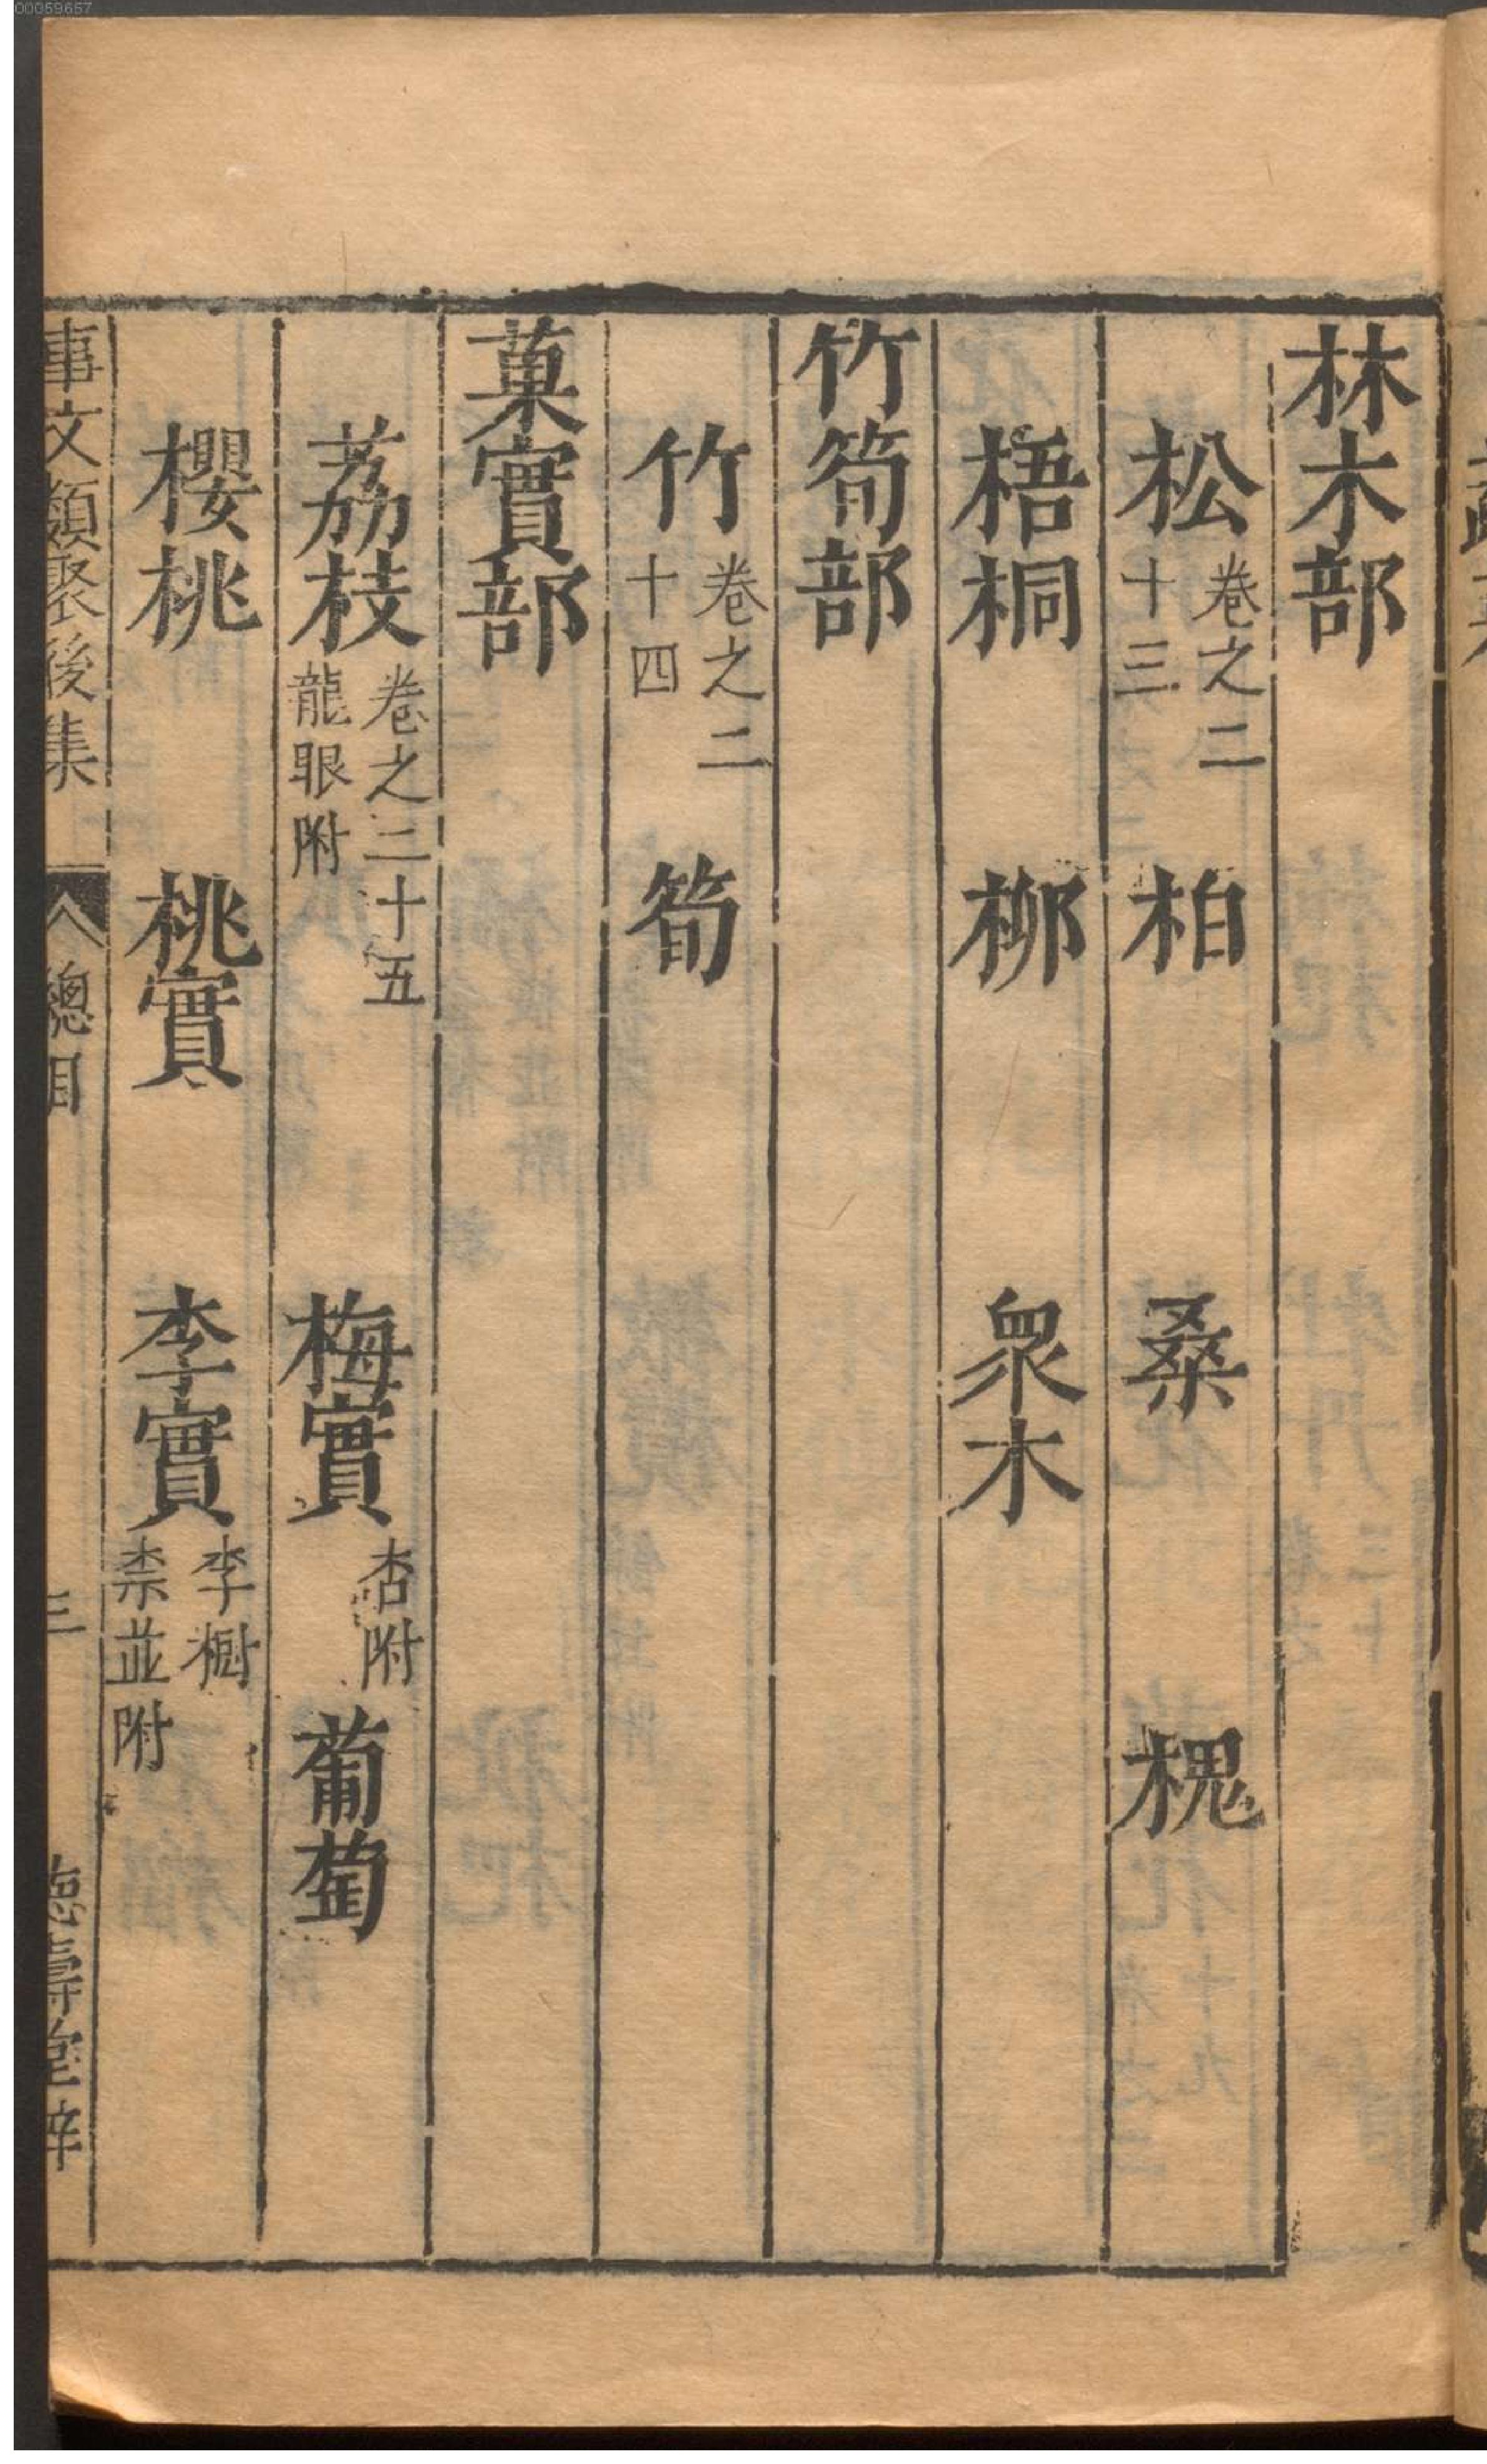 00059657
林木部
松 卷之二十三 柏 桑 槐
梧桐 栁 衆木
竹筍部
竹 卷之二十四 筍
菓實部
荔枝 卷之二十五 龍眼附 梅實 杏附 葡萄
櫻桃 桃實 李實 李𣘻柰並附
事文類聚後集 總目 三 德壽堂梓